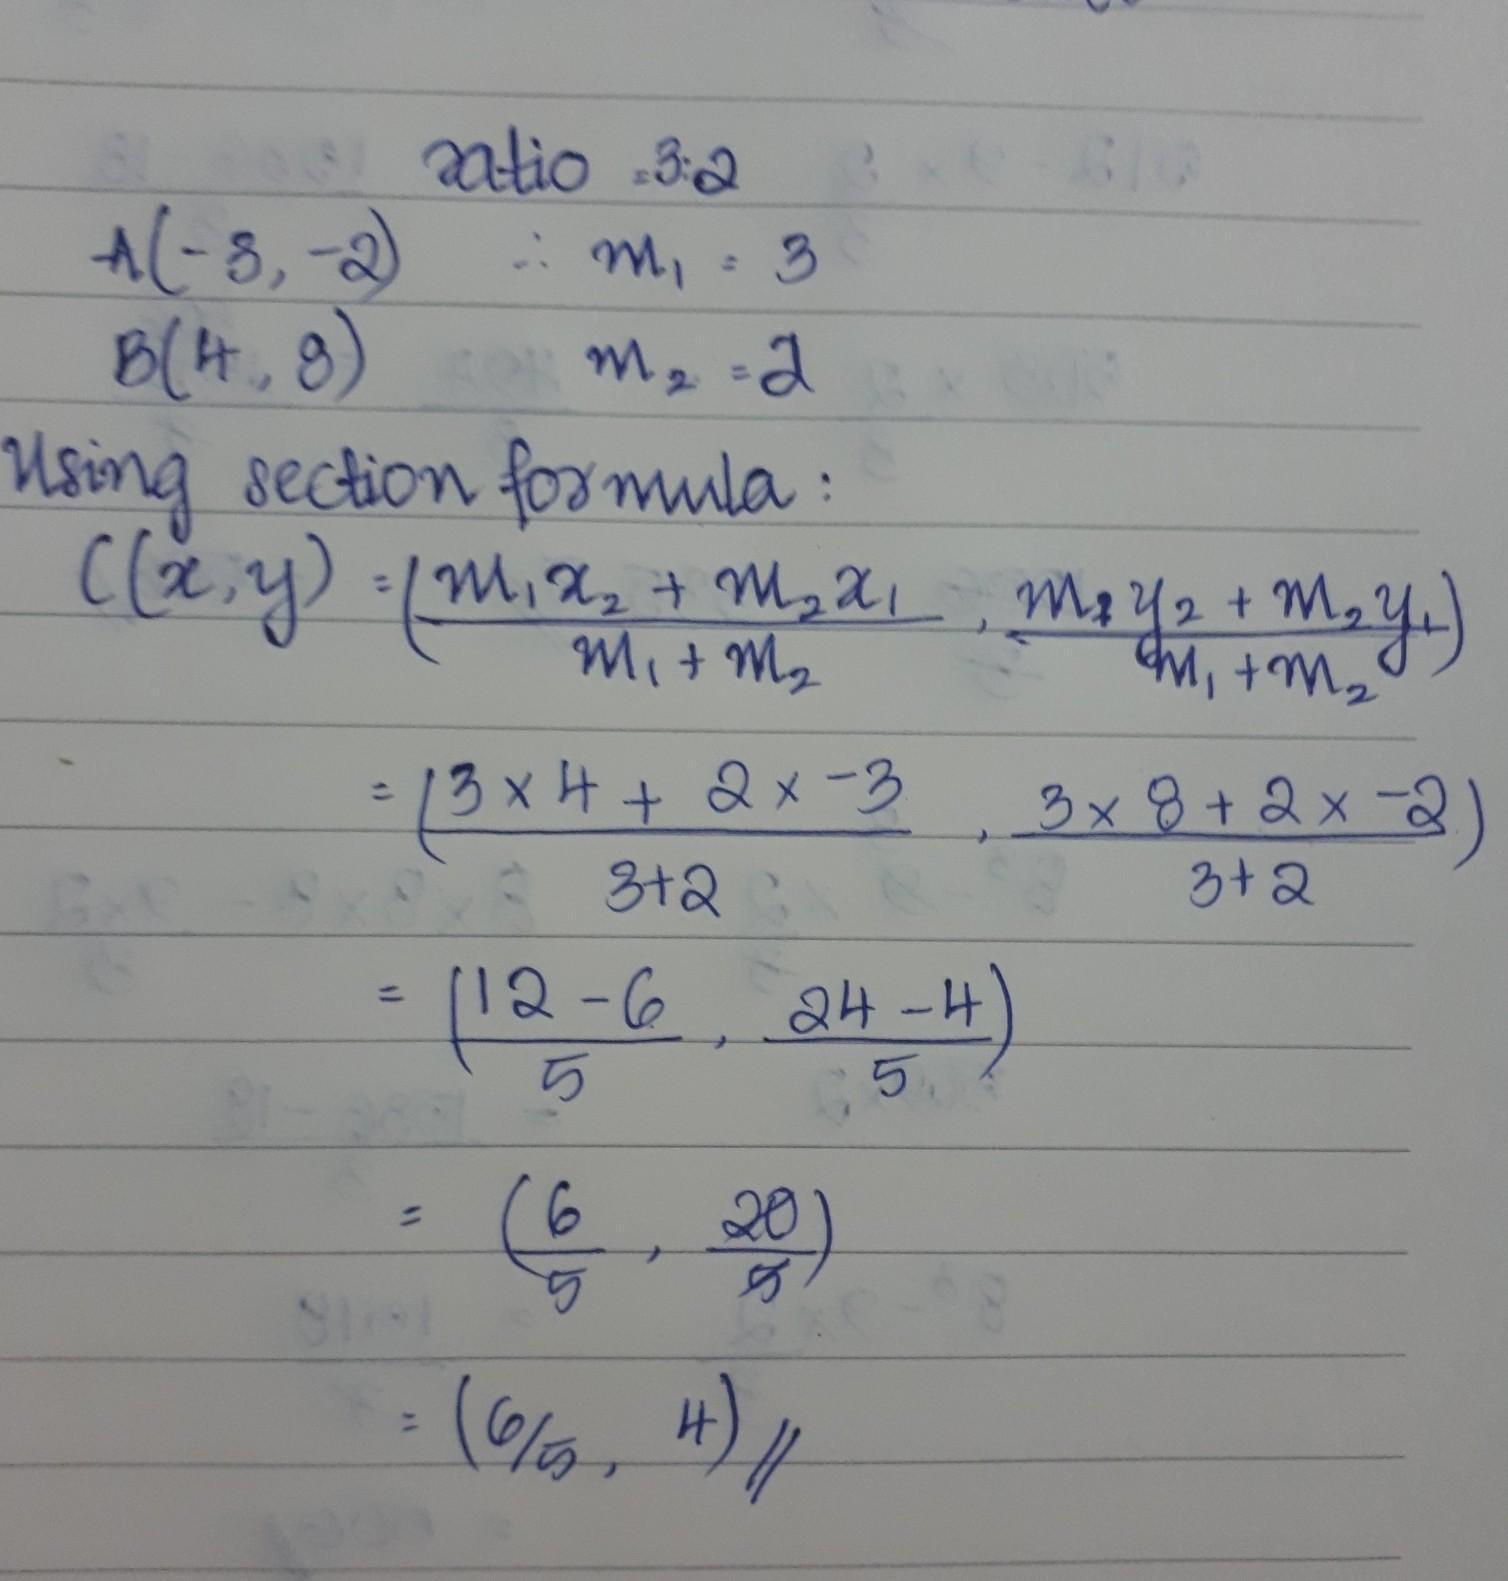 ratio = 3:2
A(-3, -2) ∴ m₁ = 3
B(4, 8) m₂ = 2
Using section formula :
C(x, y) = (m₁x₂ + m₂x₁ / m₁ + m₂ , m₁y₂ + m₂y₁ / m₁ + m₂)
= (3 × 4 + 2 × -3 / 3+2 , 3 × 8 + 2 × -2 / 3+2)
= (12 - 6 / 5 , 24 - 4 / 5)
= (6/5 , 20/5)
= (6/5, 4)//